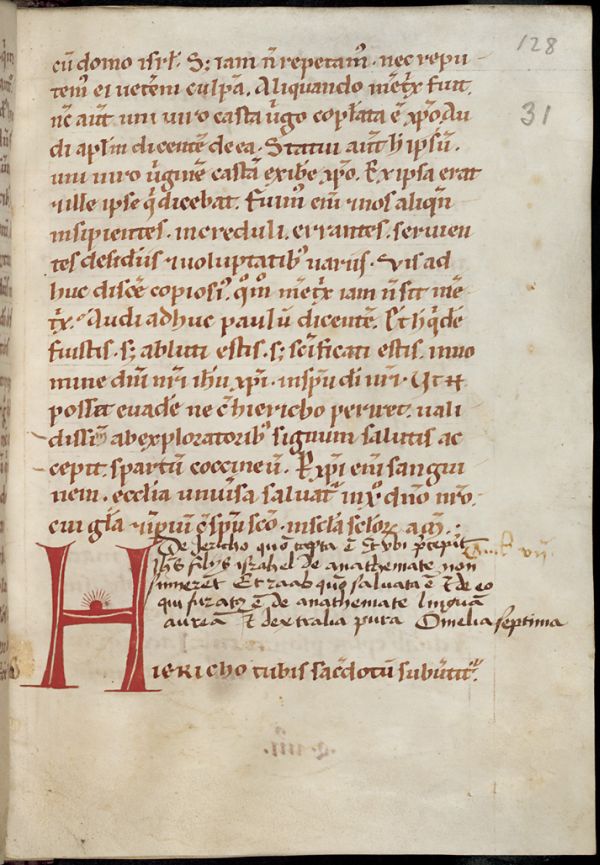 128
31
cū domo isrł. S; iam n̄ repetam᷒. nec repu
tem᷒ ei ueterē culpā. Aliquando m̄etⁱx fuit.
nc̄ aut̄. uni uiro casta ūgo copłata ē xp̄o. Au
di apłm dicentē de ea. Statui aut̄ h̄ ipsū.
uni uiro ūginē castā exibe xp̄o. Ex ipsa erat
⁊ ille ipse q̄ dicebat. Fuim᷒ eni᷒ ⁊ nos aliqn̄
insipientes. increduli. errantes. seruien
tes desideriis ⁊ uoluptatib᷒ uariis. Vis ad
huc discē copiosi᷒. qm̄o m̄etⁱx iam n̄ sit m̄e
tⁱx. Audi adhuc paulū dicentē. Et h̄ qⁱdē
fuistis. s; abluti estis. s; sc̄ificati estis. in no
mine dn̄i nr̄i ih̄u xp̄i. ⁊ in spū di nr̄i. Vt
possit euadē ne c̄ hiericho periret. uali
dissim᷒ ab exploratorib᷒ signum salutis ac
cepit. spartū coccineū. P xp̄i eni᷒ sangui
nem. eccłia uniūsa saluat᷒ in xp̄o dn̄o nr̄o.
cui gła ⁊ impiū c̄ spū sc̄o. in sc̄ła scłoꝝ. am̄.
De Jericho quō capta ē Et vbi p̄cepit
ihs filijs israhel de anathemate non
sumerent Et raab quō saluata ē Et de eo
qui furat᷒ ē de anathemate linguā
aureā Et dextralia pura Omelia septima
Hiericho tubis sac̄dotū subūtit᷒.